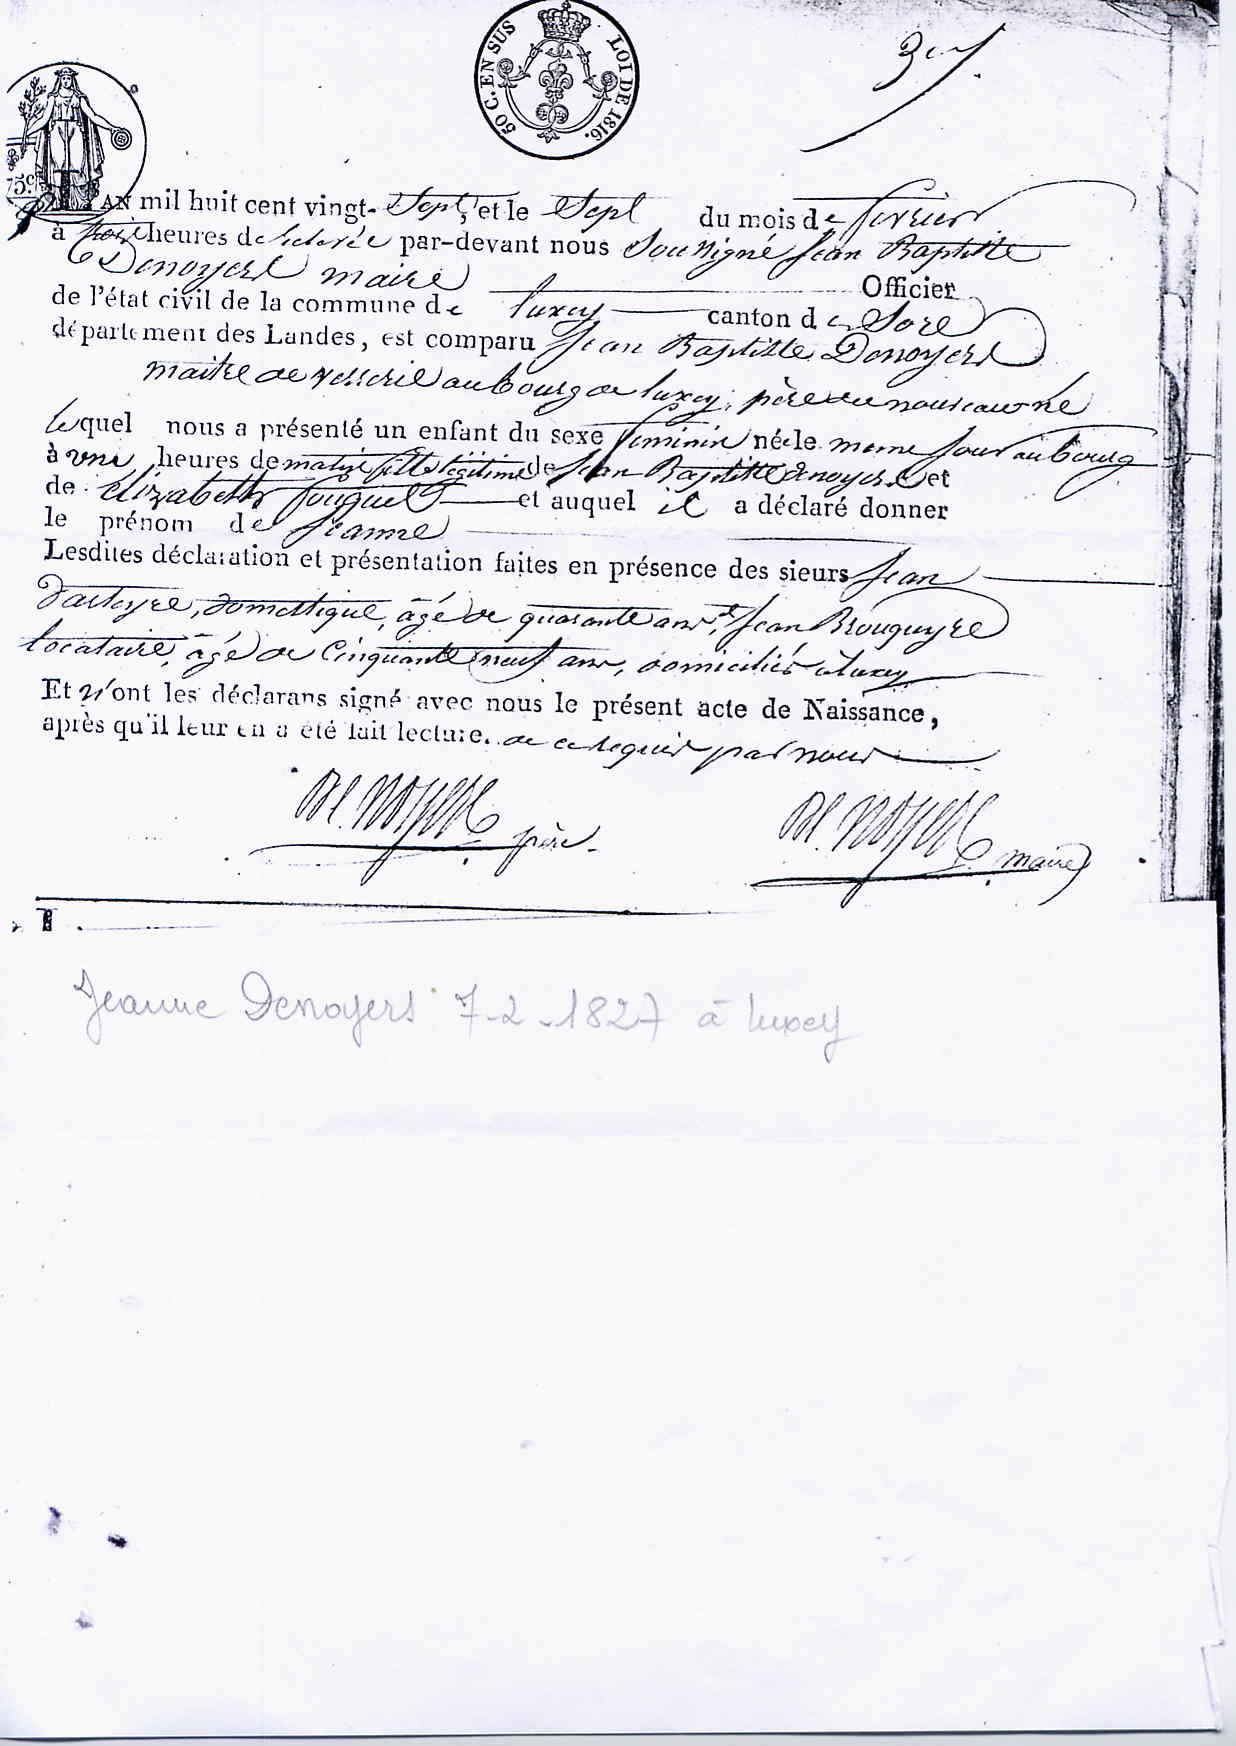 50 C. EN SUS LOI DE 1816.
75c
L'AN mil huit cent vingt-Sept, et le Sept du mois de fevrier
à trois heures de relevée par-devant nous Soussigné Jean Baptiste
Denoyers maire Officier
de l'état civil de la commune de luxey canton de Sore
département des Landes, est comparu Jean Baptiste Denoyers
maitre de verrerie au bourg de luxey, père du nouveau né
lequel nous a présenté un enfant du sexe feminin née le meme jour au bourg
à une heures de matin fille légitime de Jean Baptiste Denoyers et
de Elizabeth fouquet et auquel il a déclaré donner
le prénom de Jeanne
Lesdites déclaration et présentation faites en présence des sieurs Jean
domestique, âgé de quarante ans, et Jean Brouqueyre
locataire, âgé de Cinquante neuf ans, domiciliés à luxey
Et n'ont les déclarans signé avec nous le présent acte de Naissance,
après qu'il leur en a été fait lecture. de ce requis par nous
De noyers père
De noyers maire
Jeanne Denoyers 7-2-1827 à luxey